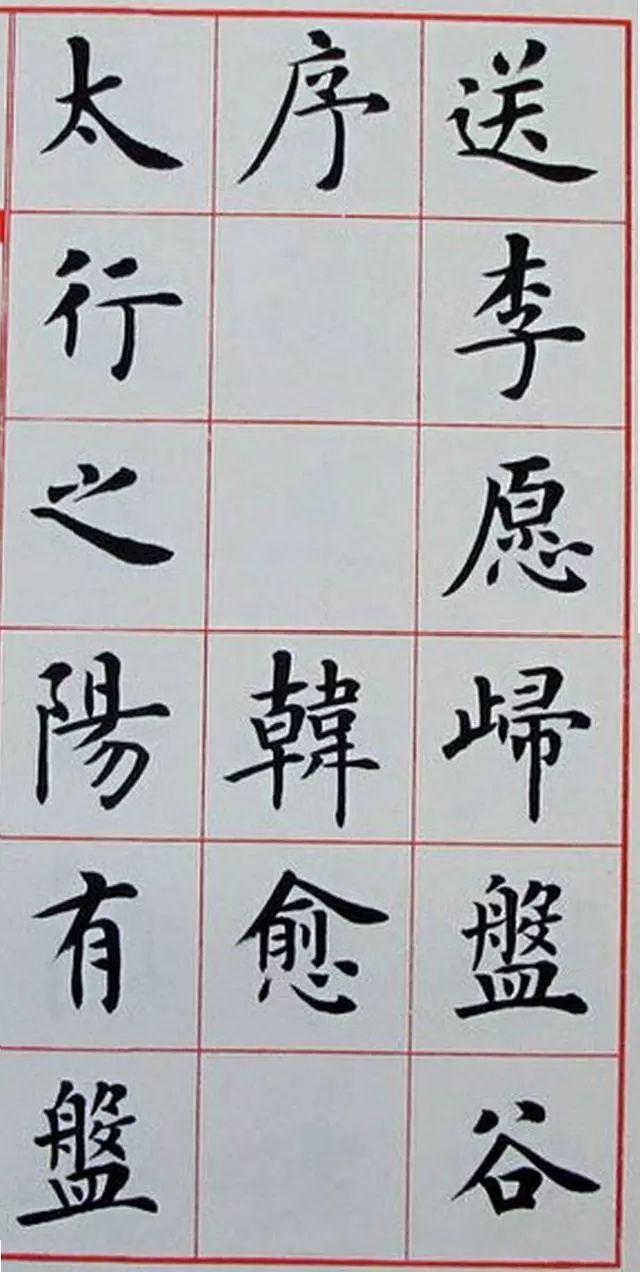 送李愿歸盤谷
序 韓愈
太行之陽有盤